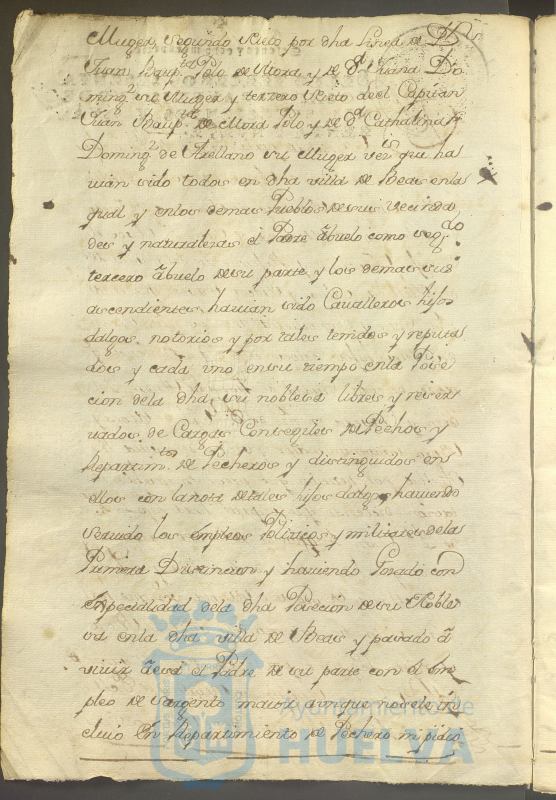 Muger, segundo Nieto por dha Linea de Dn
Juan Baupta Polo de Mora y de Da Juana Do
mingz su Muger y terzero Nieto de el Capitan
Juan Baupta de Mora Polo y de Da Cathalina
Domingz de Arellano su Muger vezs que ha
uian sido todos en dha villa de Beas en la
qual y en los demas Pueblos de sus vecinda
des y naturalezas el Padre abuelo como segdo
tercero abuelo de su parte, y los demas sus
ascendientes hauian sido Caualleros hijos
dalgos, notorios y por tales tenidos y reputa
dos y cada uno en su tiempo en la Pose
cion de la dha su nobleza libres y reser
uados, de Cargas Consegiles de Pechos y
Repartimtos de Pecheros y distinguidos en
ellos con la nota de tales hijos dalgo, hauiendo
seruido los empleos Politicos y militares de la
Primera Distincion y hauiendo Gosado con
especialidad de la dha Posecion de su Noble
sa en la dha villa de Beas y pasado a
viuir a esa el Padre de su parte con el em
pleo de Sargento maior aunque no se le in
cluio en Repartimiento de Pechero ni pidio
Ayuntamiento de
HUELVA